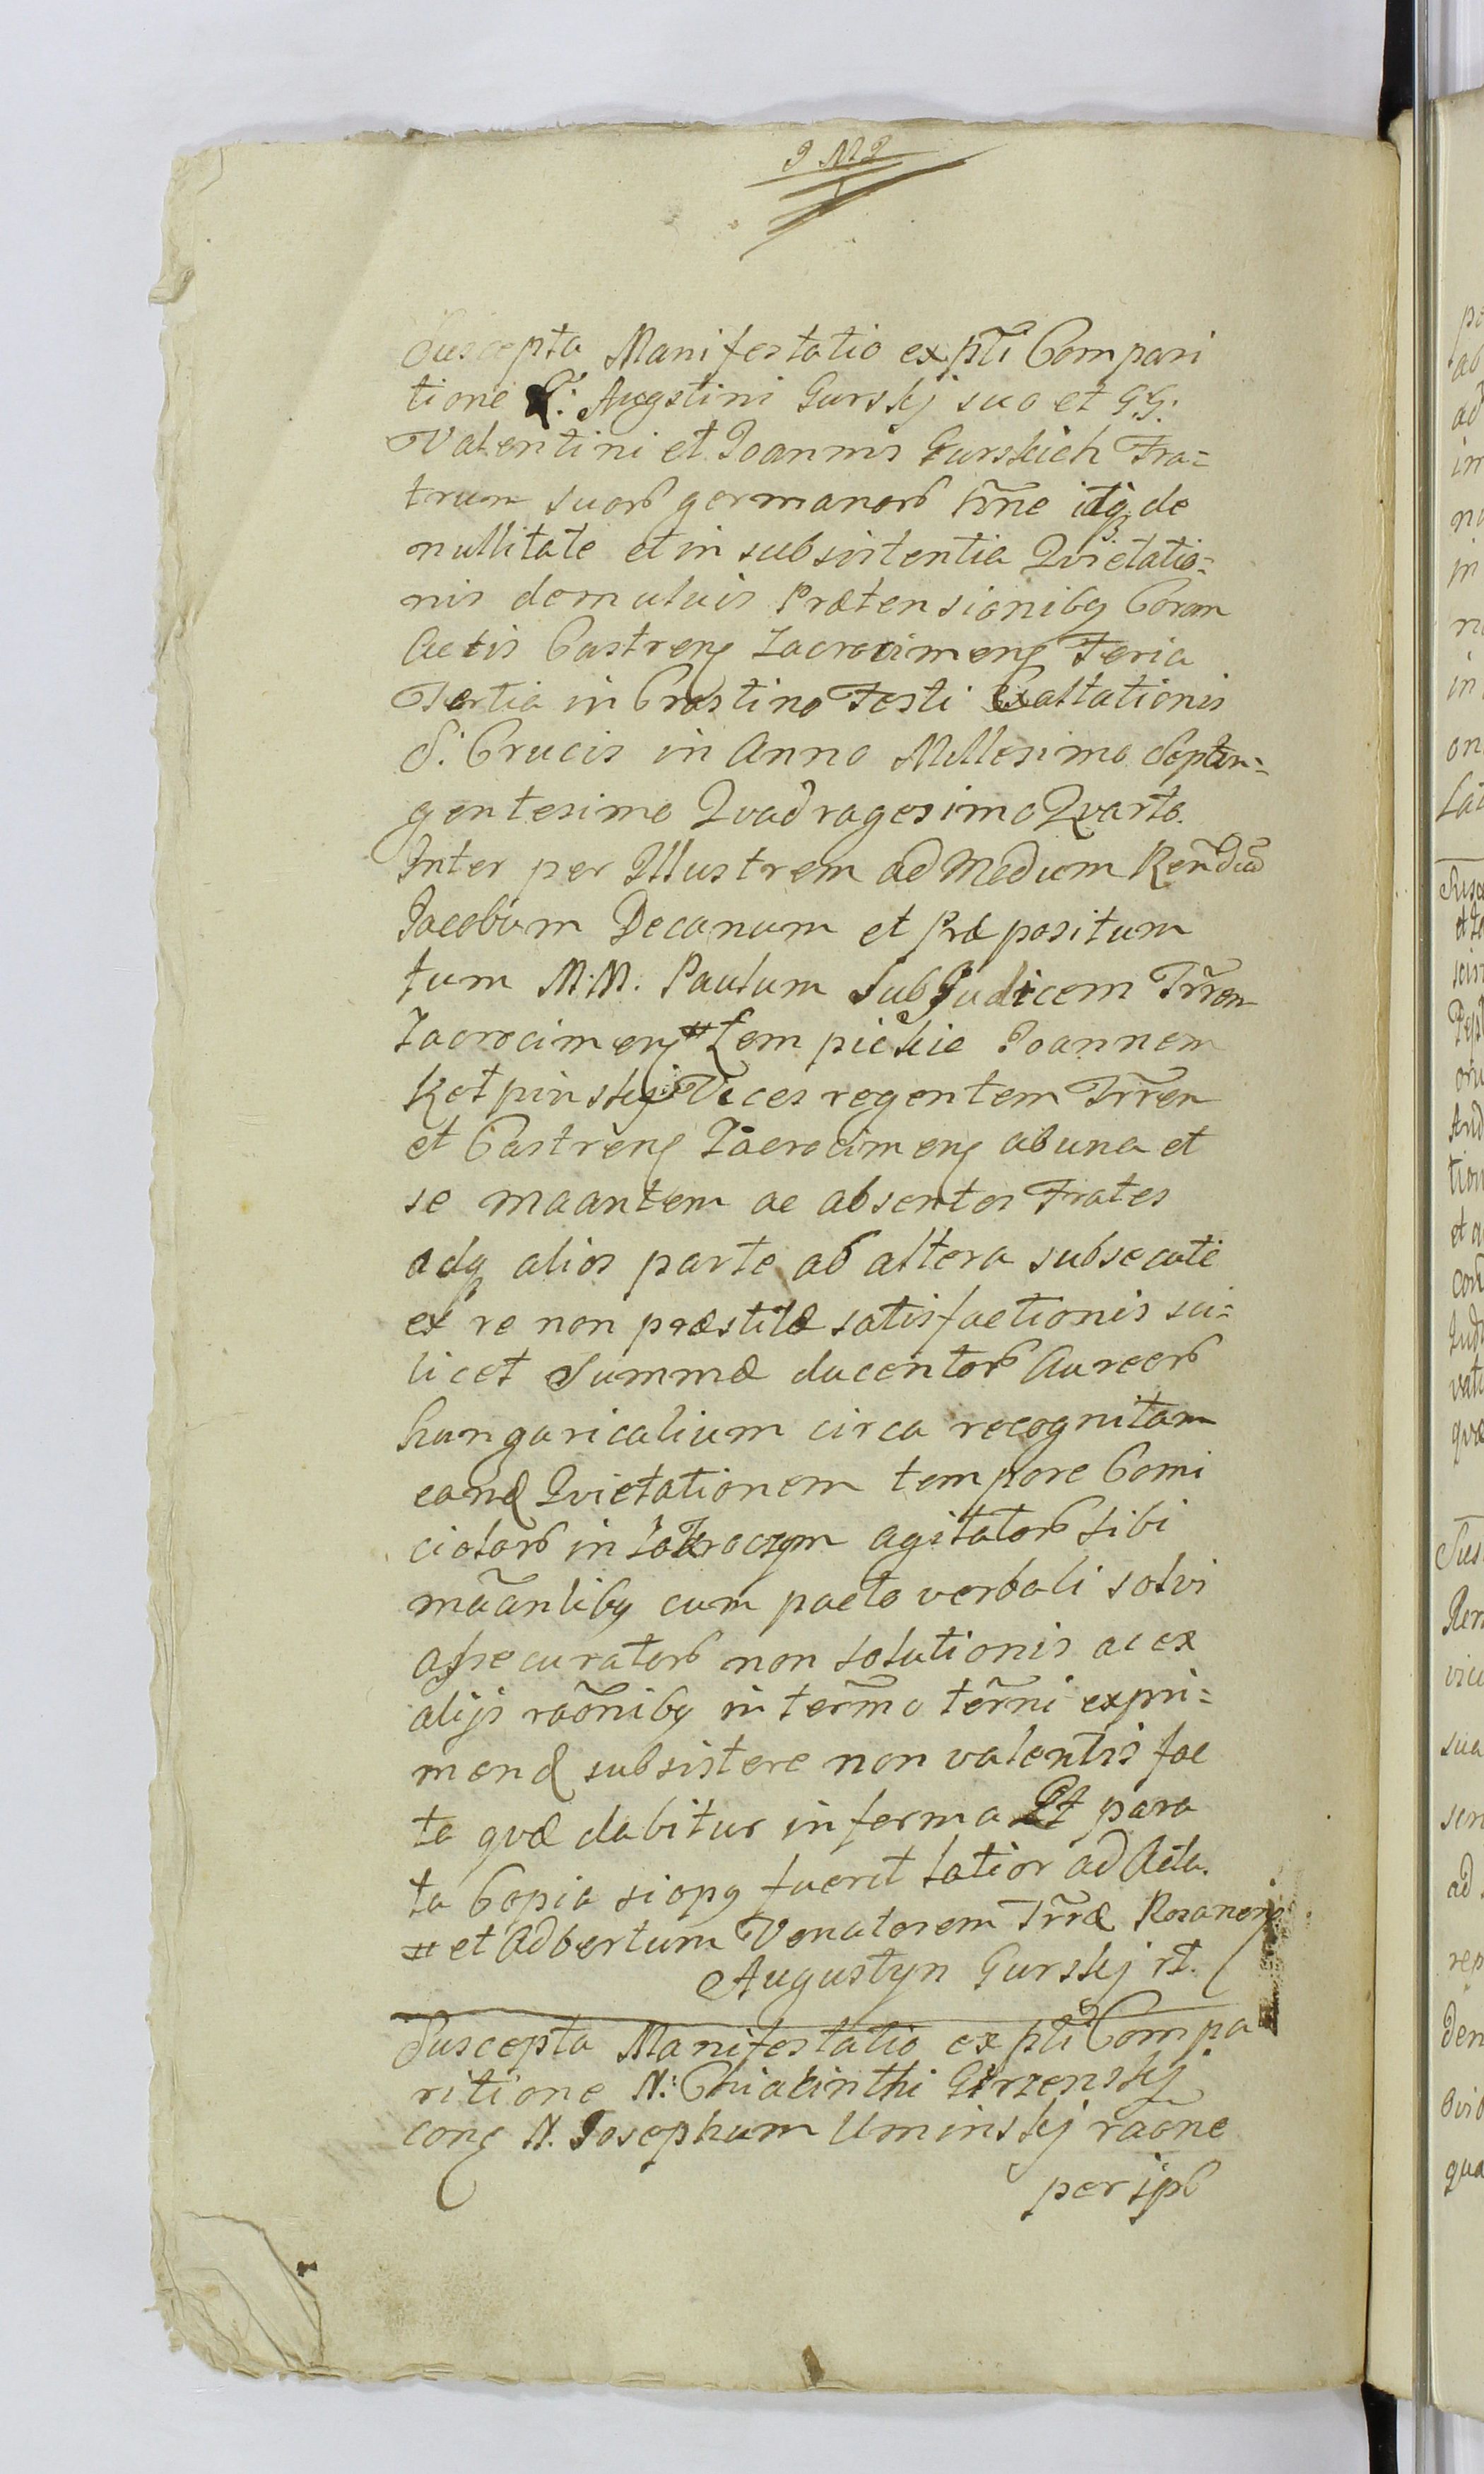 J M J
Suscepta Manifestatio ex pti Compari
tione G: Augstini Gurskj suo et GG.
Valentini et Joannis Gurskich Fra=
trum suorb germanorb nne itq de
nullitate et in subsistentia Qvietatio=
nis de mutuis Prætensioniby Coram
Actis Castreng Zacrocimeng Feria
Tertia in Crastino Festi Exaltationis
S: Crucis in Anno Millesimo Septin=
gentesimo Qvadragesimo Qvarto.
Inter per Illustrem ad Modum Rendum
Jacobum Decanum et Præpositum
tum M.M. Paulum SubJudicem Trren
Zacrocimeng # Lempickie Joannem
Kotpinskj Vices regentem Trren
et Castreng Zacrocimeng ab una et
se maantem ac absentes Frates
adq alios parte ab altera subsecuti
ex re non præstitæ satisfactionis sci=
licet Summæ ducentorb Aureorb
hungaricalium circa recognitam
eand Qvietationem tempore Comi
ciolorb in Zakroczym agitatorb sibi
maantiby cum pacto verbali solvi
assecuratorb non solutionis ac ex
alijs raoniby in termo terni expri=
mend subsistere non valentis fac
ta qvæ dabitur in forma Et para
ta Copia siopg fuerit latior ad Acta.
# et Adbertum Venatorem Trræ Rozaneng
Augustyn Gurskj rt.
Suscepta Manifestatio ex pti Compa
ritione N: Chiacinthi Girzenskj
cong N. Josephum Uminskj raone
per ipb